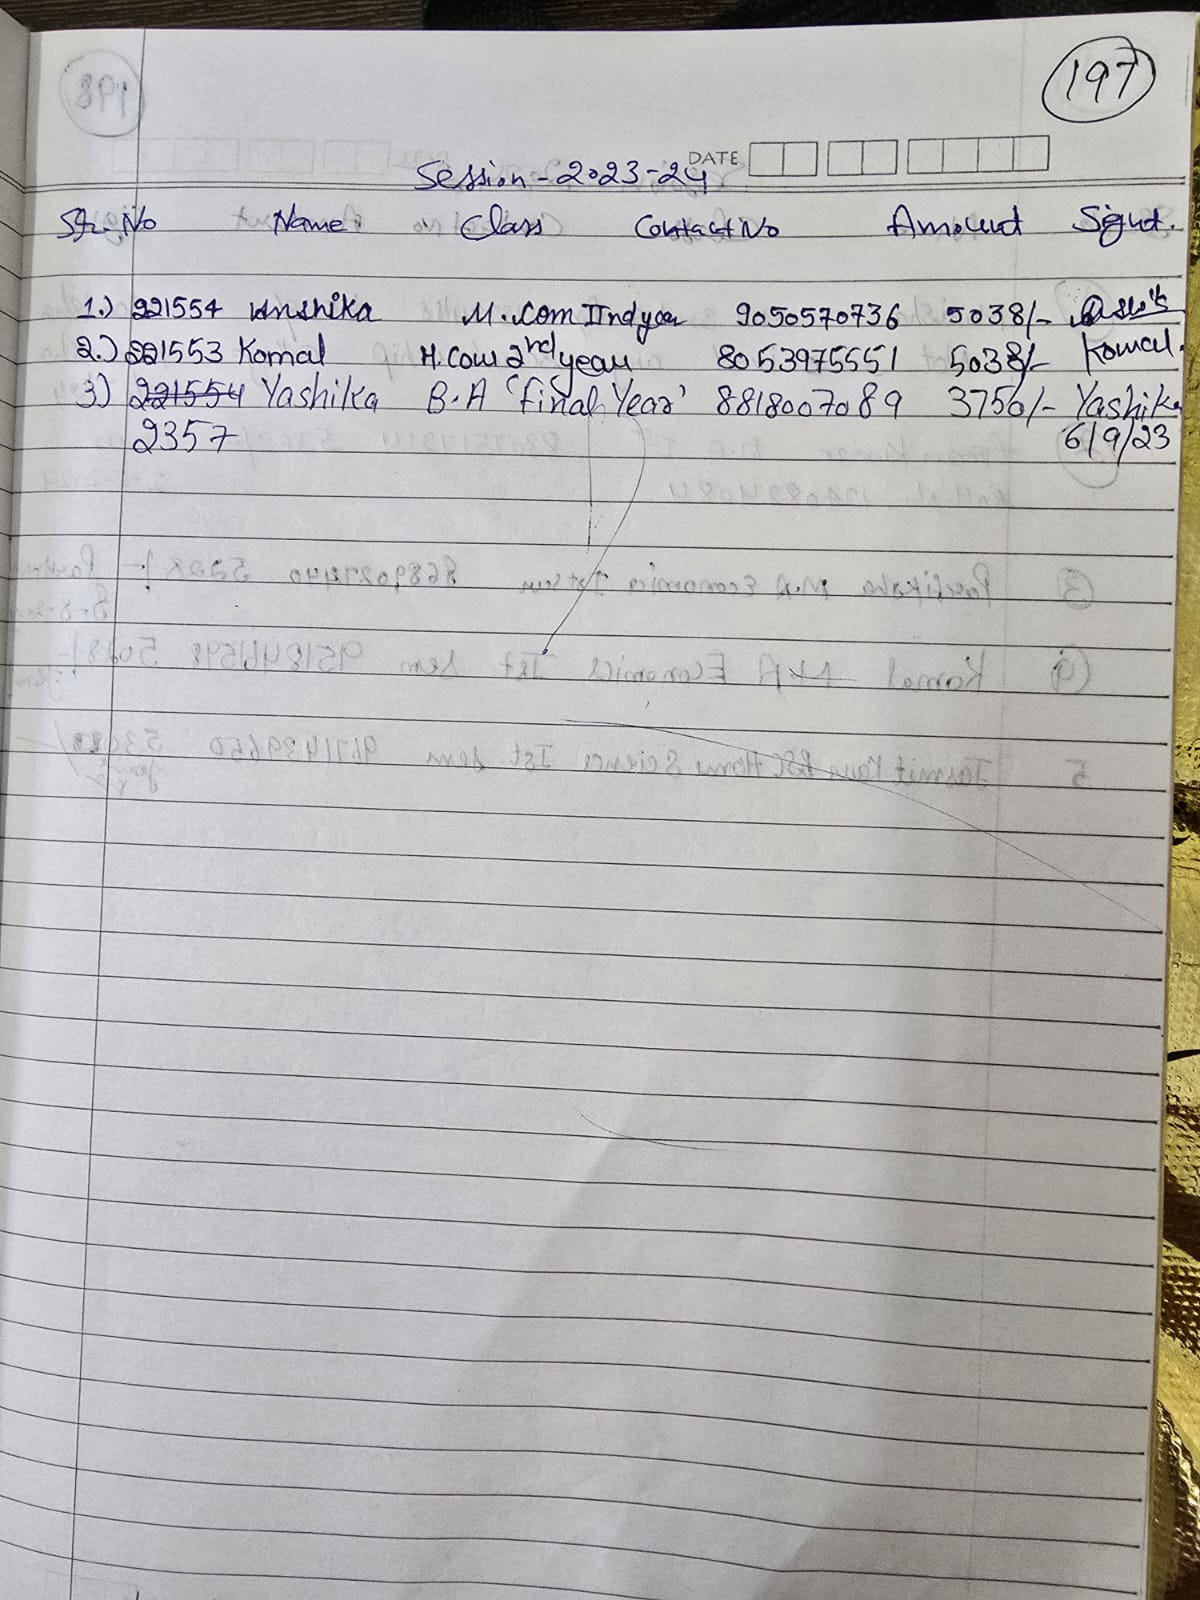 197
DATE
Session - 2023-24
Sr. No Name Class Contact No Amount Signat.
1.) 221554 Anshika M. Com IInd year 9050570736 5038/-
2.) 221553 Komal M. Com 2nd year 8053975551 5038/- Komal.
3) 221554 Yashika B.A 'final Year' 8818007089 3750/- Yashika
2357 6/9/23